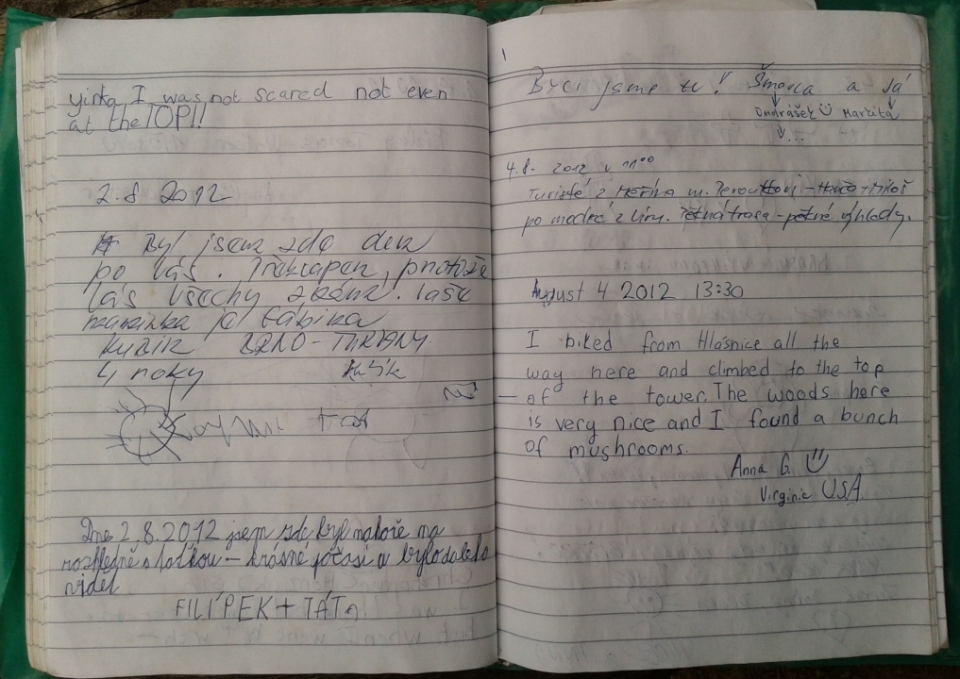 I was not scared not even
at the TOP!!
2.8 2012
Byl jsem zde den
po vás. Překvapen, protože
vás všechy znám. Vaše
maminka je
KUBÍK BRNO-TUŘANY
4 roky Kubík
Dne 2.8.2012 jsem zde byl nahoře na
rozhledně s taťkou – krásné počasí a bylo daleko
vidět
FILÍPEK + TÁTA
Byli jsme tu! Šmorca a Já
Ondrášek Markéta
4.8. 2012 v 11⁰⁰
Turisté z
po modré z trasa - pěkné výhledy.
August 4 2012 13:30
I biked from Hlásnice all the
way here and climbed to the top
of the tower. The woods here
is very nice and I found a bunch
of mushrooms.
Anna G.
Virginie USA